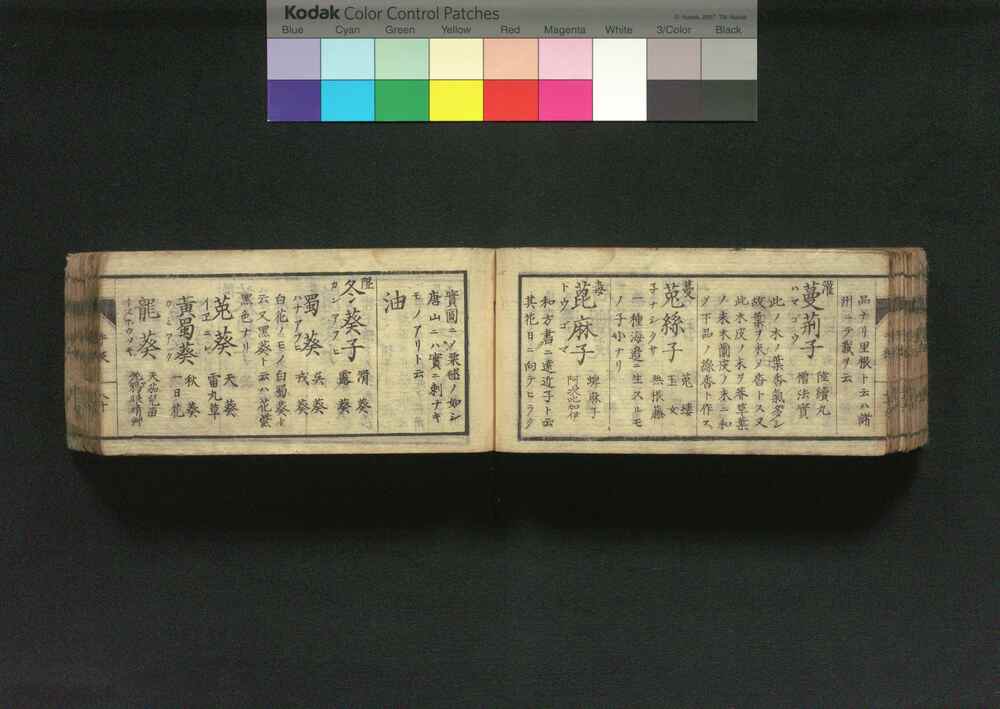 Kodak Color Control Patches
© Kodak, 2007 TM: Kodak
Blue Cyan Green Yellow Red Magenta White 3/Color Black
品ナリ里根ト云ハ諸
州ニテ蔓ヲ云
灌 蔓荊子 陸續丸
ハマゴウ 僧法實
此ノ木ノ葉香氣多シ
故葉ヲ末メ香トス又
此木皮ノ末ヲ
ノ末木蘭皮ノ末ニ和
グ下品ノ線香ト作ス
蔓 菟絲子 菟縷
子ナシクサ 玉女
無根藤
一種海邉ニ生スルモ
ノ子小ナリ
毒 萆麻子 蜱麻子
トウゴマ
和方書ニ遠近子ト云
其花日ニ向テヒラク
實圓ニソ栗毬ノ如シ
唐山ニハ實ニ刺ナキ
モノアリト云
油
隰 冬葵子 滑葵
カンアフヒ 露葵
蜀葵 吳葵
ハナアフヒ 戎葵
白花ノモノ白蜀葵ト
云又黑葵ト云ハ花紫
黑色ナリ
菟葵 天葵
イヱニレ 雷丸草
黃蜀葵 秋葵
一日花
龍葵 天茄苗